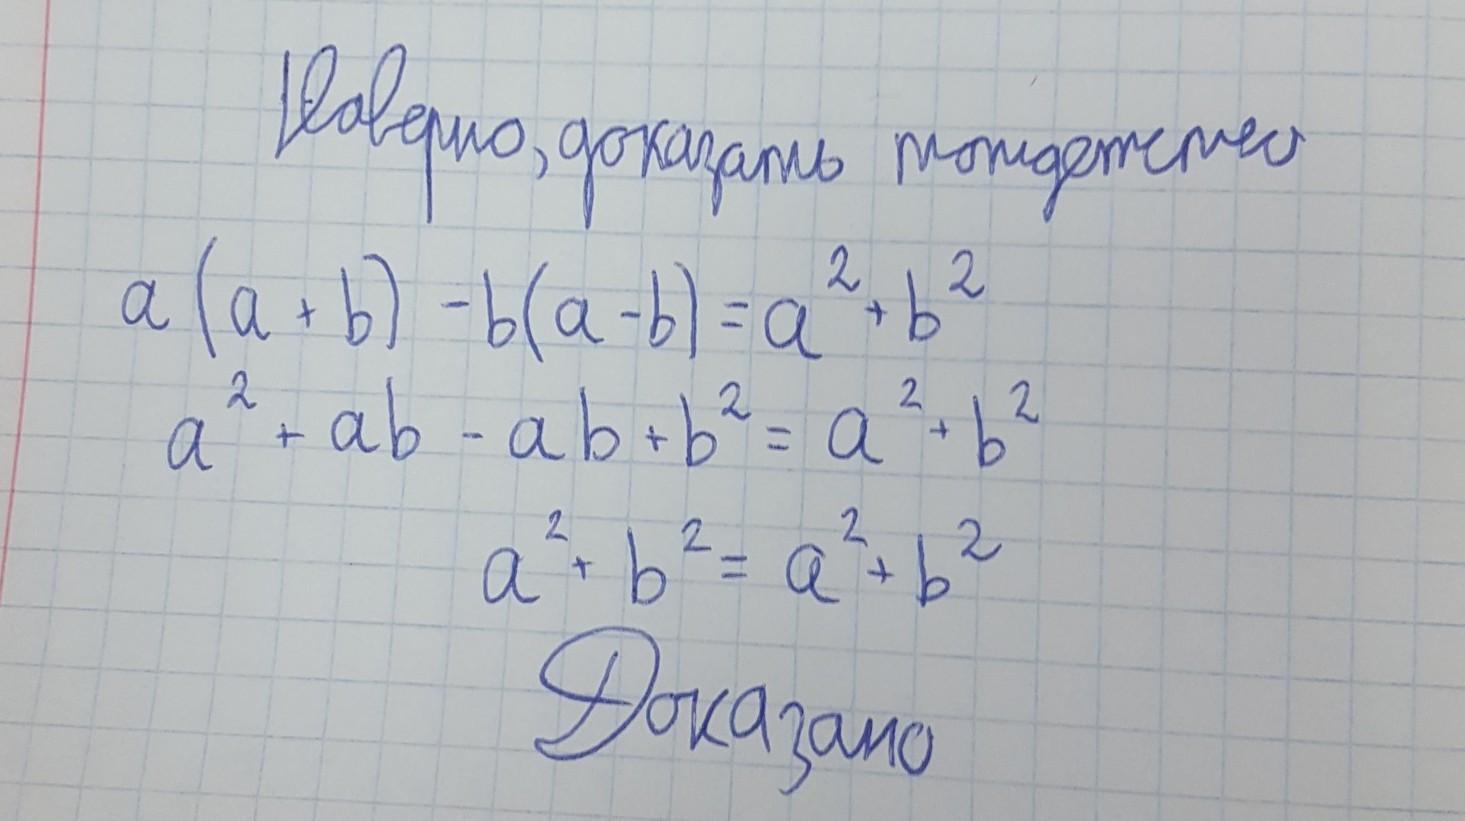 Наверно, доказать тождество
a(a+b)-b(a-b)=a²+b²
a²+ab-ab+b²=a²+b²
a²+b²=a²+b²
Доказано